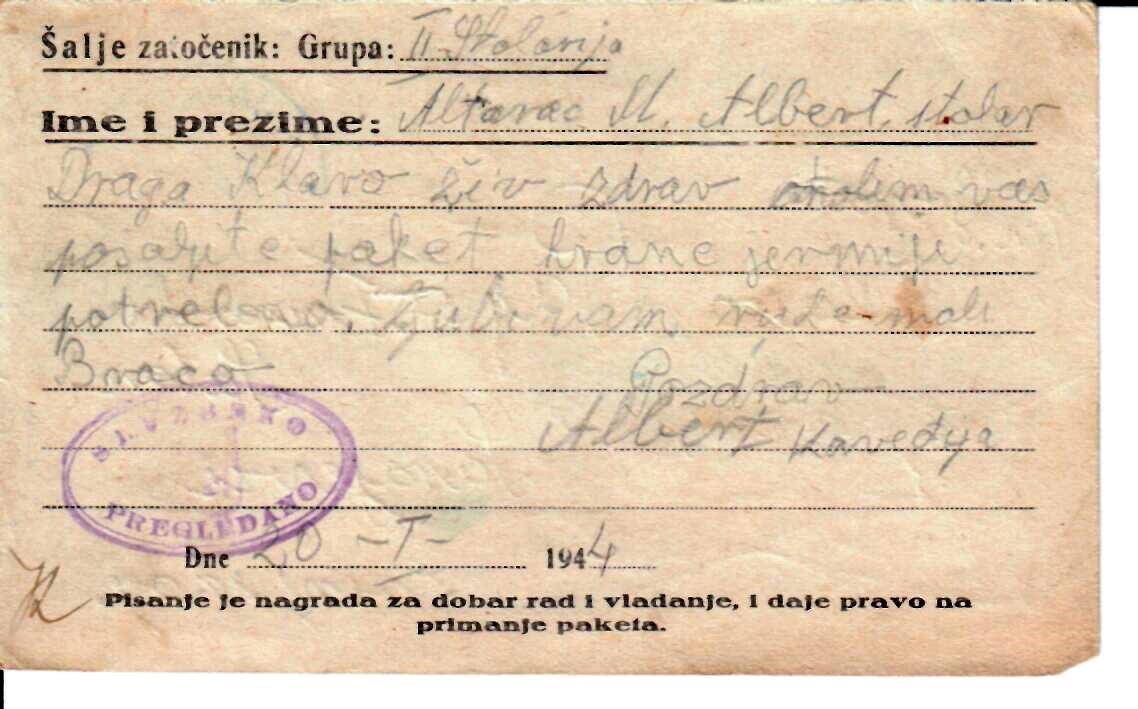 Šalje zatočenik: Grupa: II Stolarija
Ime i prezime: Altarac M. Albert, stolar
Draga Klavo živ zdrav molim vas
posaljite paket hrane jer mi je
potrebno. Ljubi vam ruke mali
Braco Pozdrav
Albert Kavedya
SLUŽBENO
PREGLEDANO
Dne 20 -I- 1944
Pisanje je nagrada za dobar rad i vladanje, i daje pravo na
primanje paketa.